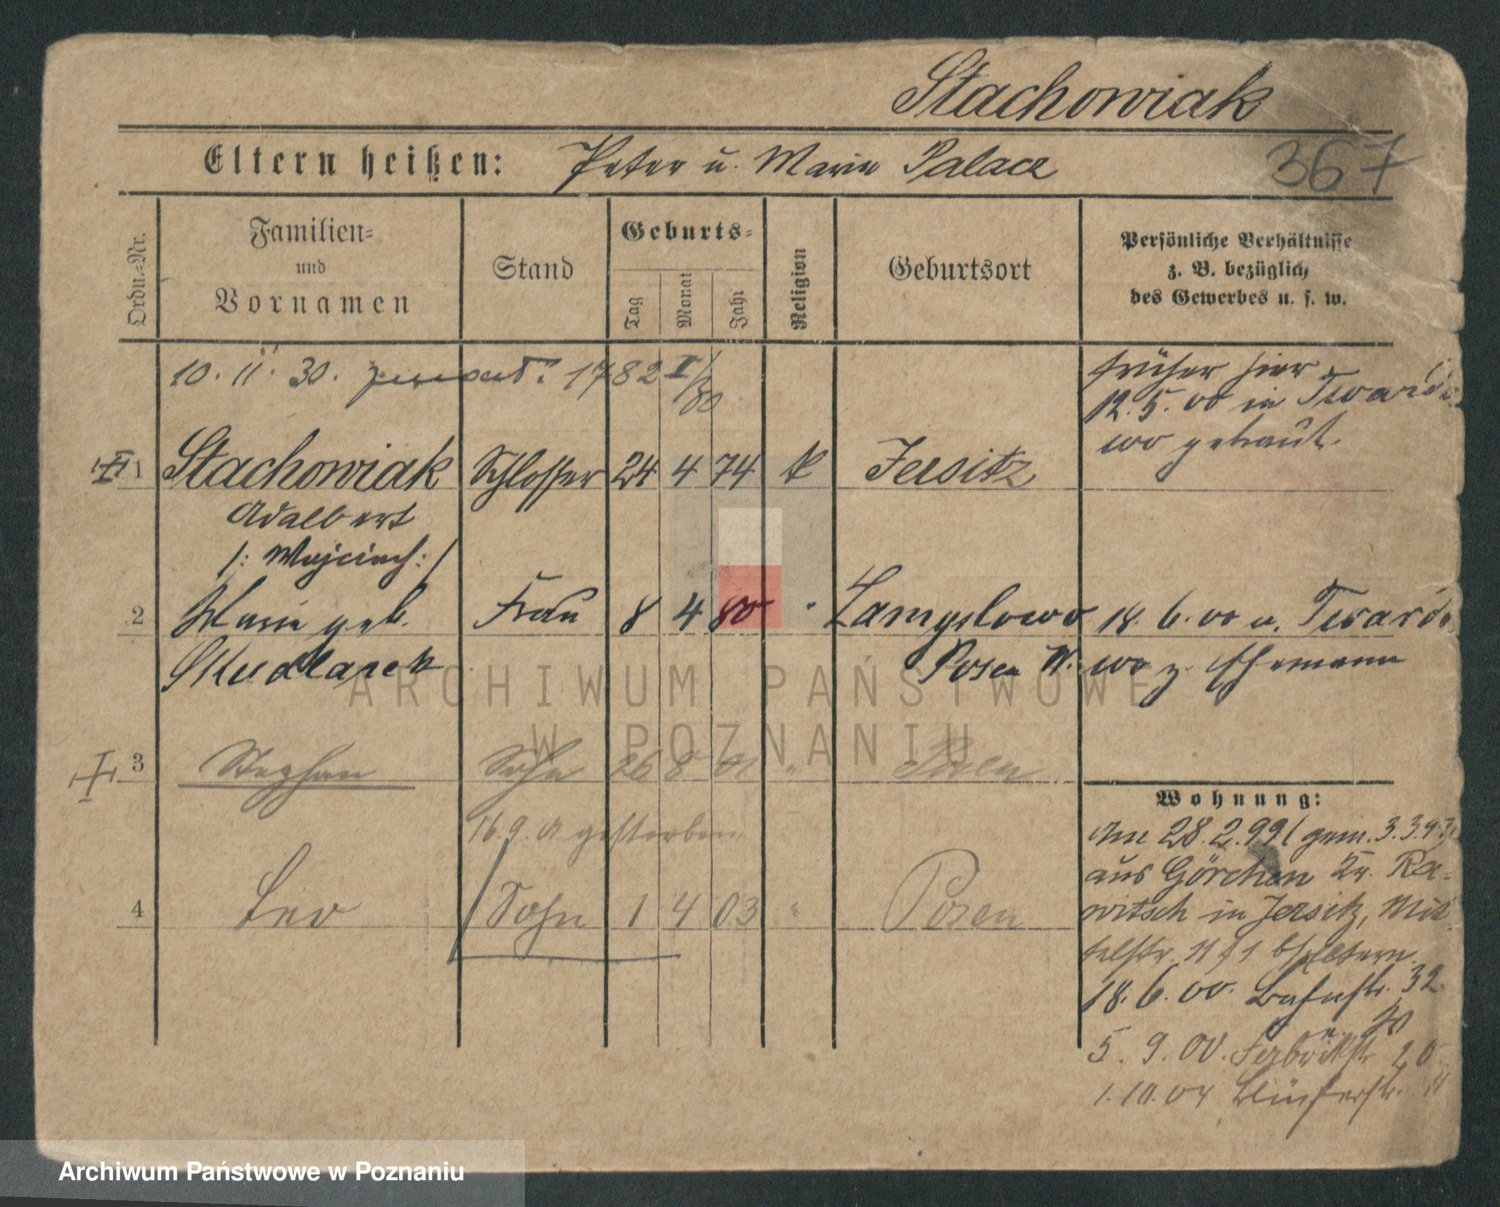 Stachowiak
Eltern heißen: Peter u. Marie Palacz
367
Ordn.-Nr.
Familien- und Vornamen
Stand
Geburts-
Tag
Monat
Jahr
Religion
Geburtsort
Persönliche Verhältnisse
z. B. bezüglich
des Gewerbes u. s. w.
10. 11. 30. 1782 I/80
früher hier
12. 5. 00 in Twardo
wo getraut.
1 Stachowiak Schlosser 24 4 74 k Jersitz
Adalbert
/: Wojciech :/
2 Marie geb. Frau 8 4 80 " 18. 6. 00 v. Twardo
Skudlarek Posen W. wo z. Ehemann
3 Stephan Sohn 26 8 01 " Posen
16. 9. 01 gestorben
4 Leo Sohn 1 4 03 " Posen
Wohnung:
Am 28. 2. 99 / gem. 3. 3. 97
aus Görchen Kr. Ra-
witsch in Jersitz, Mit-
telstr. b. Eltern.
18. 6. 00. Bahnstr. 32
5. 9. 00. 20
1. 10. 04 11
ARCHIWUM PAŃSTWOWE
W POZNANIU
Archiwum Państwowe w Poznaniu